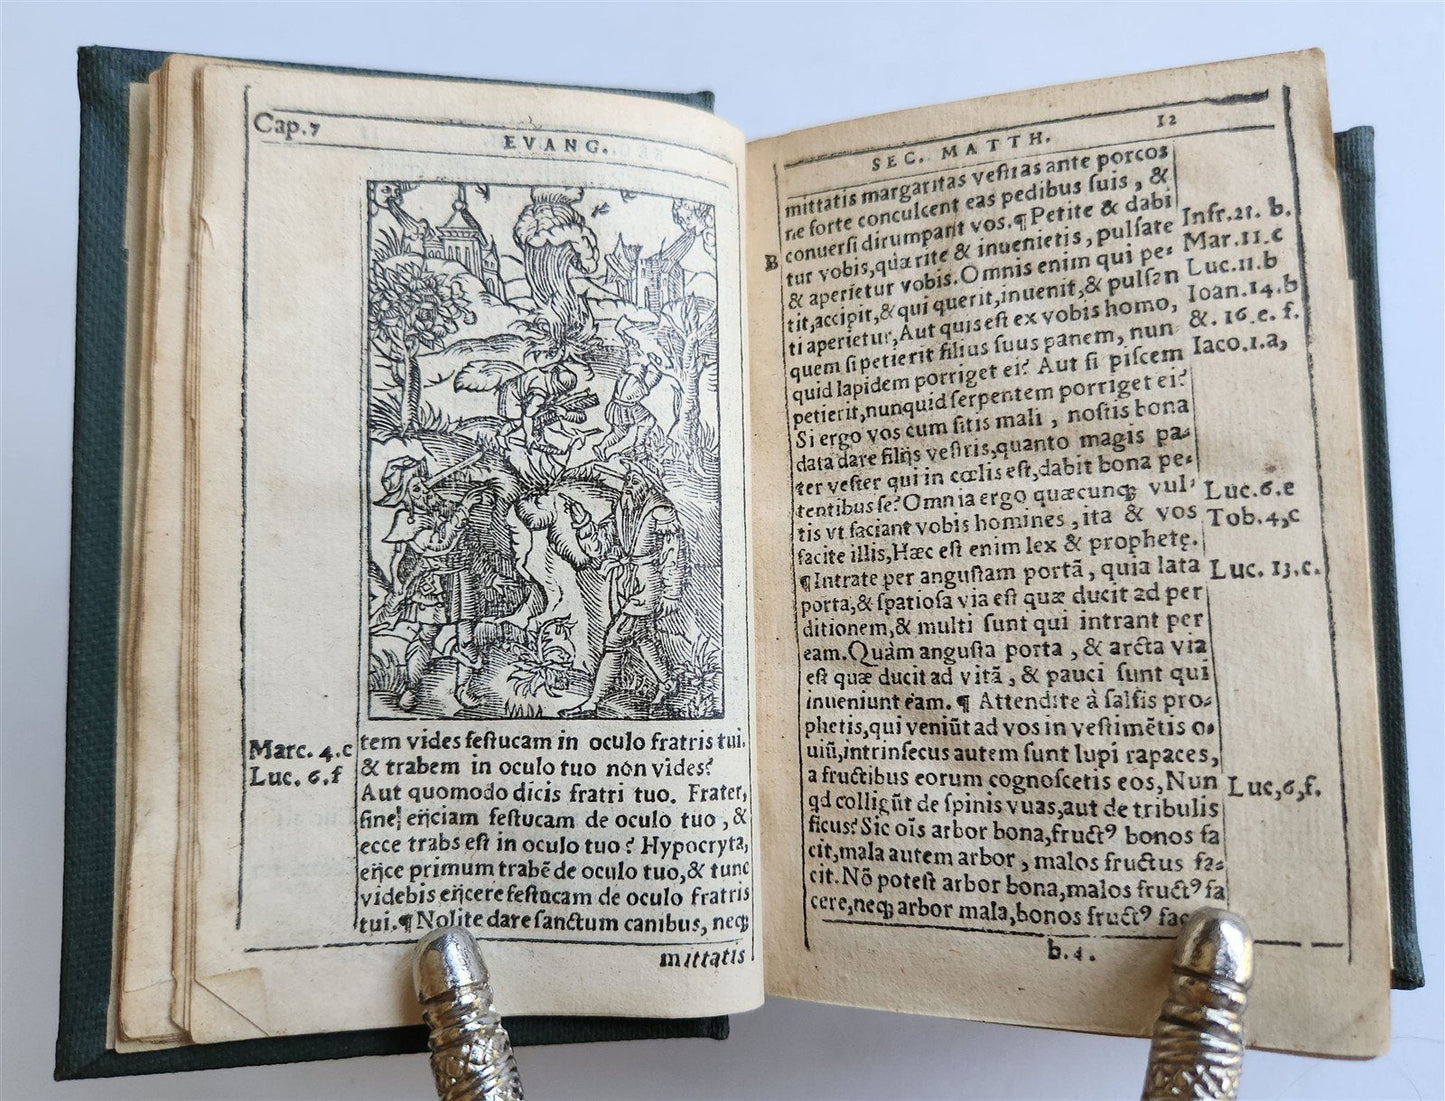 Cap.7
EVANG.
Marc. 4.c
Luc. 6.f
tem vides festucam in oculo fratris tui.
& trabem in oculo tuo non vides?
Aut quomodo dicis fratri tuo. Frater,
sine, eijciam festucam de oculo tuo, &
ecce trabs est in oculo tuo? Hypocryta,
eijce primum trabẽ de oculo tuo,& tunc
videbis eijcere festucam de oculo fratris
tui.¶ Nolite dare sanctum canibus, neqꝫ
mittatis
SEC. MATTH.
12
mittatis margaritas vestras ante porcos
ne forte conculcent eas pedibus suis, &
conuersi dirumpant vos.¶ Petite & dabi
B
tur vobis,quærite & inuenietis, pulsate
& aperietur vobis. Omnis enim qui pe-
tit,accipit,& qui querit,inuenit,& pulsan
ti aperietur, Aut quis est ex vobis homo,
quem si petierit filius suus panem, nun
quid lapidem porriget ei? Aut si piscem
petierit,nunquid serpentem porriget ei?
Si ergo vos cum sitis mali, nostis bona
data dare filijs vestris,quanto magis pa-
ter vester qui in cœlis est,dabit bona pe-
tentibus se? Omnia ergo quæcunqꝫ vul-
tis vt faciant vobis homines, ita & vos
facite illis, Hæc est enim lex & prophetę.
¶Intrate per angustam portã, quia lata
porta,& spatiosa via est quæ ducit ad per
ditionem,& multi sunt qui intrant per
eam. Quàm angusta porta, & arcta via
est quæ ducit ad vitã, & pauci sunt qui
inueniunt eam.¶ Attendite à falsis pro-
phetis,qui veniũt ad vos in vestimẽtis o-
uiũ,intrinsecus autem sunt lupi rapaces,
a fructibus eorum cognoscetis eos, Nun
qd colligũt de spinis vuas,aut de tribulis
ficus? Sic oĩs arbor bona,fructꝰ bonos fa
cit,mala autem arbor, malos fructus fa-
cit. Nõ potest arbor bona,malos fructꝰ fa
cere,neqꝫ arbor mala,bonos fructꝰ fac
b.4.
Infr.21. b.
Mar.11.c
Luc.11.b
Ioan.14.b
&. 16.e. f.
Iaco.1.a,
Luc.6.e
Tob.4,c
Luc. 13.c.
Luc,6,f.